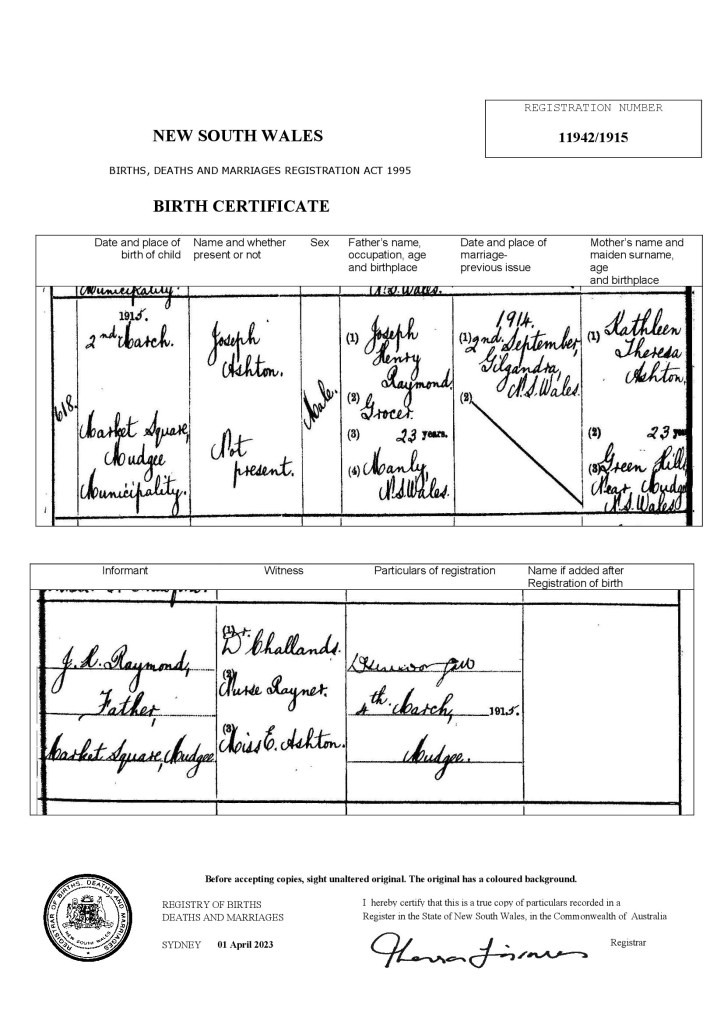 REGISTRATION NUMBER
11942/1915
NEW SOUTH WALES
BIRTHS, DEATHS AND MARRIAGES REGISTRATION ACT 1995
BIRTH CERTIFICATE
Date and place of birth of child
Name and whether present or not
Sex
Father's name, occupation, age and birthplace
Date and place of marriage- previous issue
Mother's name and maiden surname, age and birthplace
Municipality.
N.S. Wales.
618.
1915.
2nd March.
Market Square,
Mudgee
Municipality.
Joseph
Ashton.
Not
present.
Male.
(1) Joseph
Henry
Raymond.
(2) Grocer.
(3) 23 years.
(4) Manly,
N.S. Wales.
1914.
(1) 2nd. September,
Gilgandra,
N.S. Wales.
(2)
(1) Kathleen
Theresa
Ashton,
(2) 23 years
(3) Green Hills
Near Mudgee
N.S. Wales
Informant
Witness
Particulars of registration
Name if added after
Registration of birth
J. H. Raymond,
Father,
Market Square, Mudgee.
(1) Dr. Challands.
(2) Nurse Rayner.
(3) Miss E. Ashton.
4th March, 1915.
Mudgee.
Before accepting copies, sight unaltered original. The original has a coloured background.
REGISTRAR OF BIRTHS, DEATHS AND MARRIAGES
NEW SOUTH WALES
REGISTRY OF BIRTHS
DEATHS AND MARRIAGES
SYDNEY 01 April 2023
I hereby certify that this is a true copy of particulars recorded in a
Register in the State of New South Wales, in the Commonwealth of Australia
Registrar